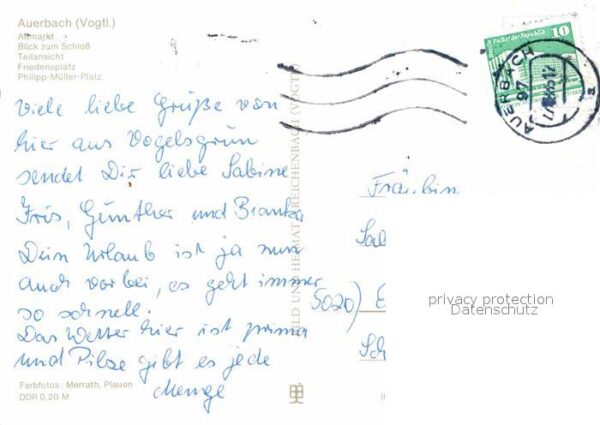 Auerbach (Vogtl.)
Altmarkt
Blick zum Schloß
Teilansicht
Friedensplatz
Philipp-Müller-Platz
Viele liebe Grüße von
hier aus Vogelsgrün
sendet Dir liebe Sabine
Iris, Günther und Bianka
Dein Urlaub ist ja nun
auch vorbei, es geht immer
so schnell.
Das Wetter hier ist prima
und Pilze gibt es jede
Menge
Farbfotos: Merrath, Plauen
DDR 0,20 M
BILD UND HEIMAT REICHENBACH (VOGTL)
Palast der Republik
10
AUERBACH
97
Fräulein
Sab
5020) E
Sch
privacy protection
Datenschutz